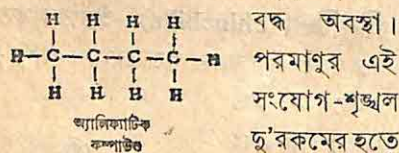 H H H H
H-C-C-C-C-H
H H H H
অ্যালিফ্যাটিক
কম্পাউণ্ড
বদ্ধ অবস্থা।
পরমাণুর এই
সংযোগ-শৃঙ্খল
দু'রকমের হতে